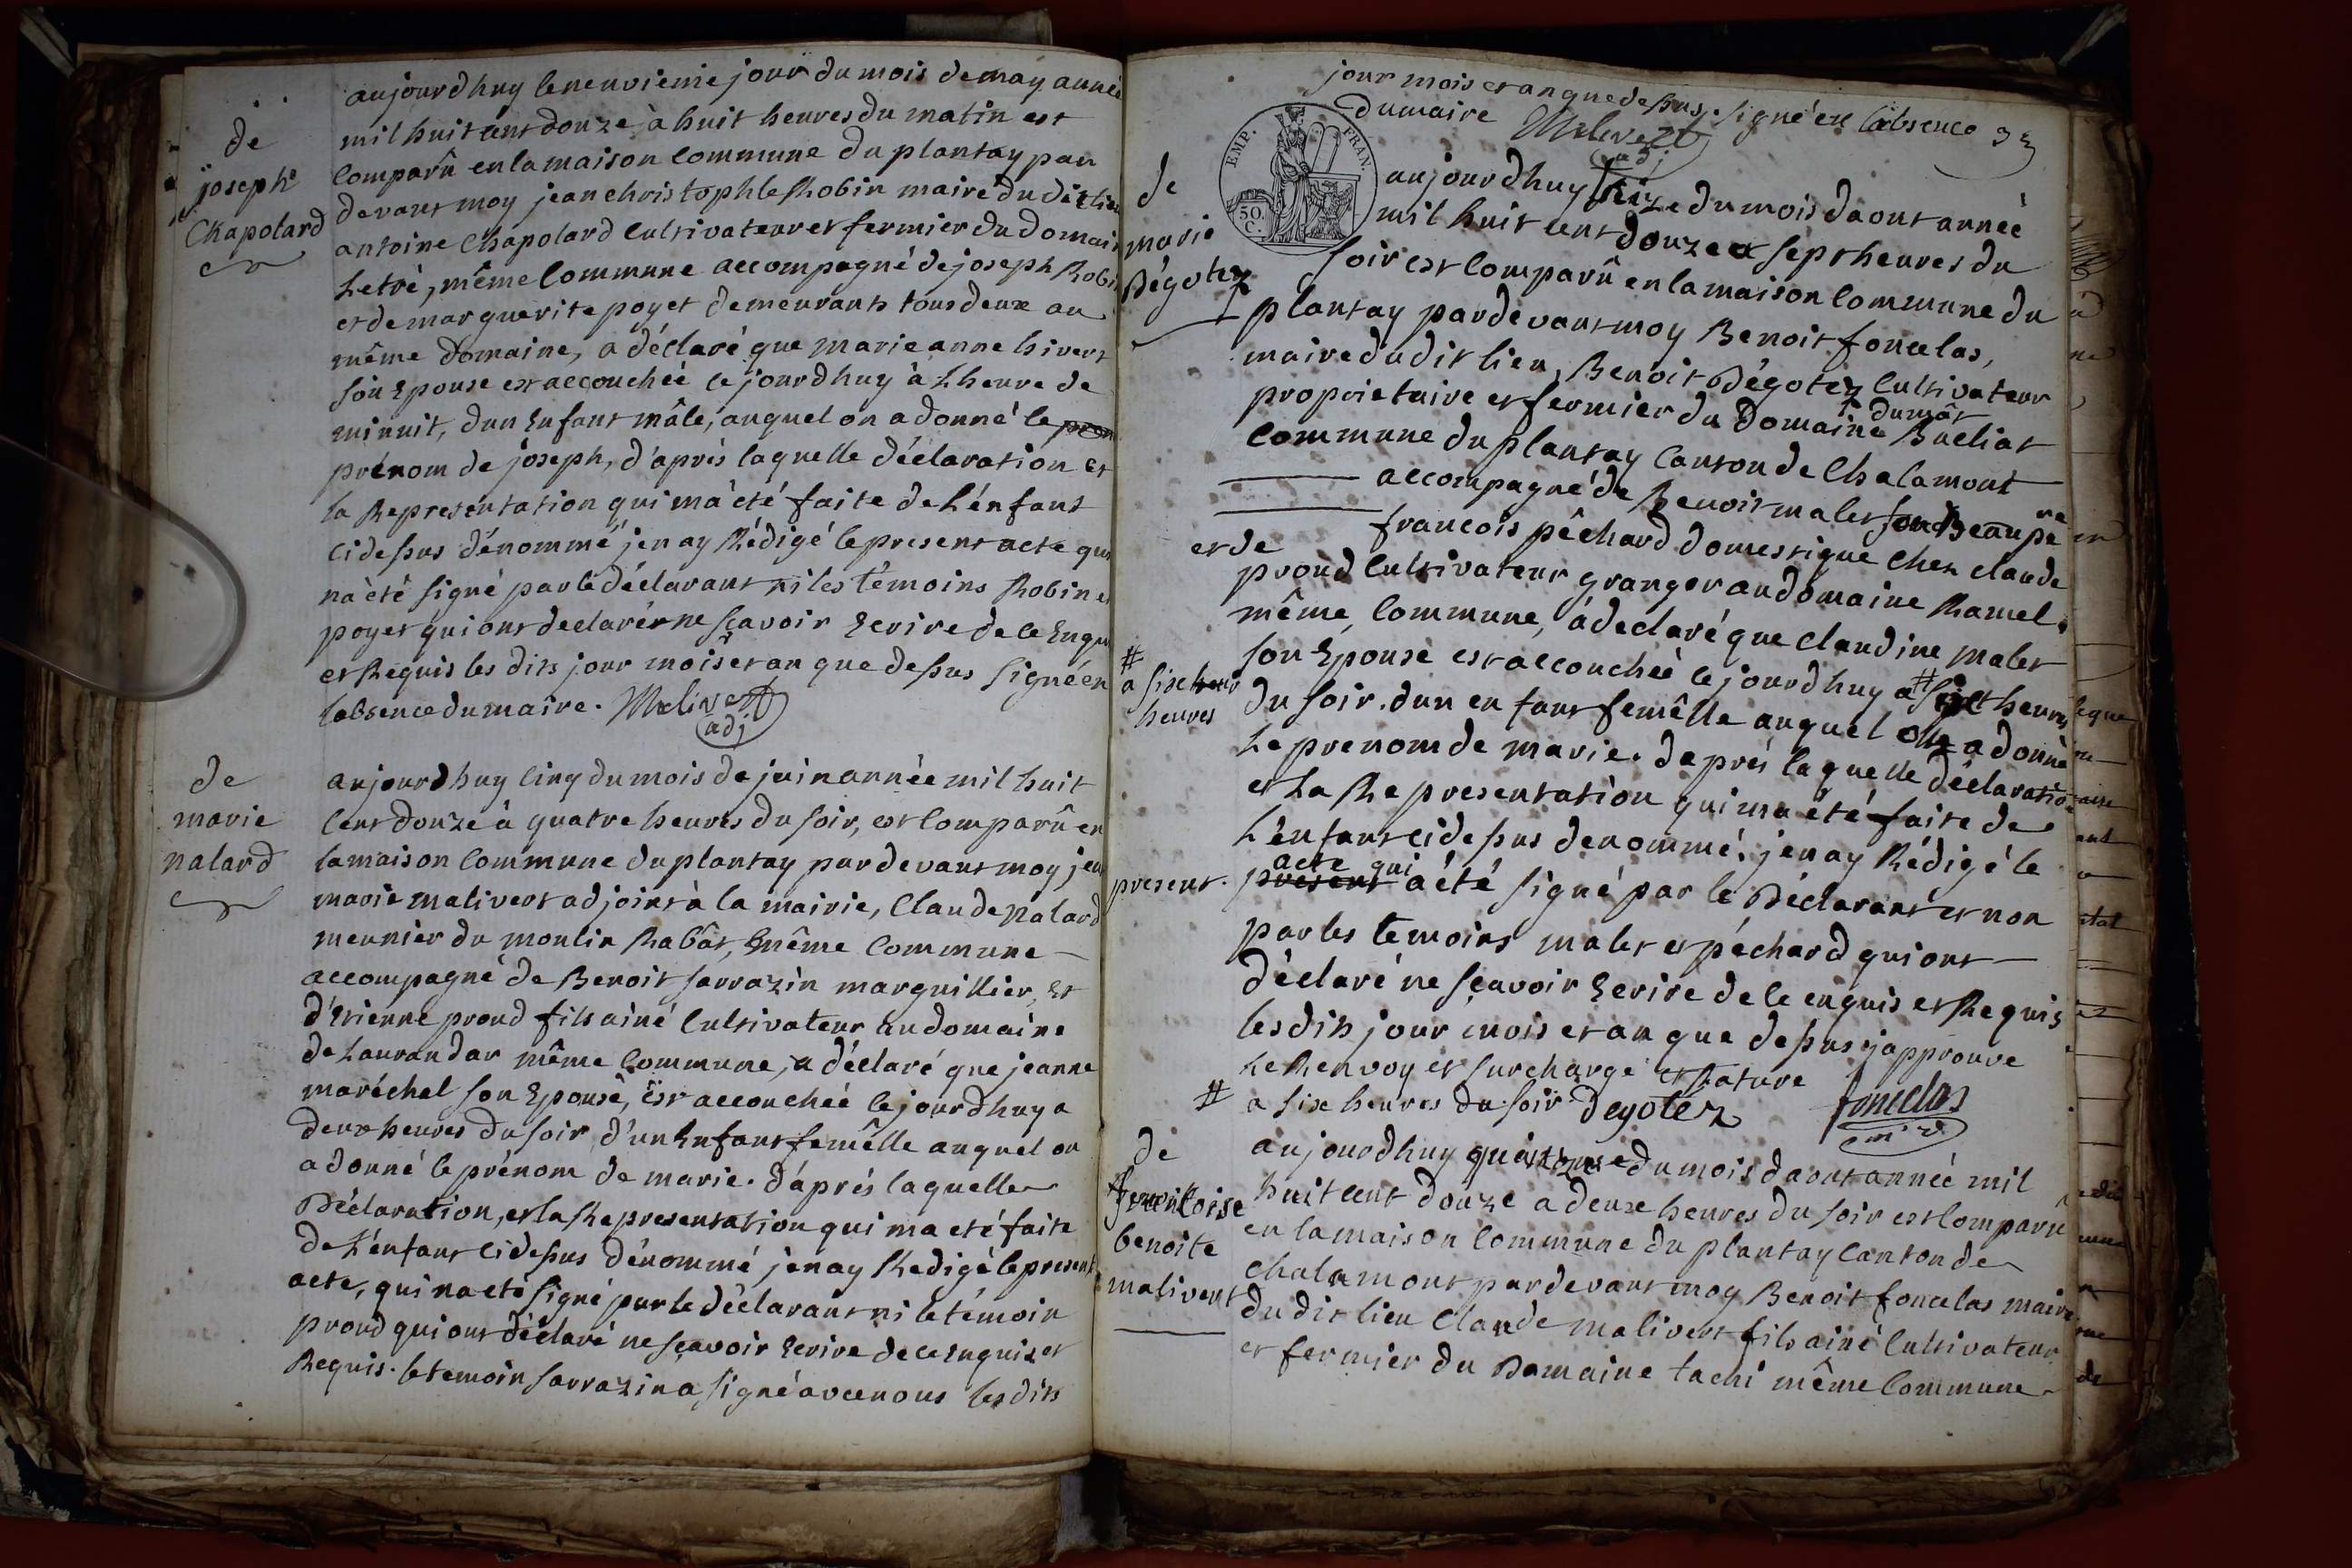 de
joseph
Chapolard
aujourdhuy le neuvieme jour du mois de may année
mil huit cent douze à huit heures du matin est
comparû en la maison commune du plantay par
devant moy jean christophle Robin maire du dit lieu
antoine Chapolard cultivateur et fermier du domaine
Letré, même commune accompagné de joseph Robin
et de marguerite poyet demeurants tous deux au
même domaine, a déclaré que marie anne hivert
son Epouse est accouchée ce jourdhuy à Lheure de
minuit, dun Enfant mâle, auquel on a donné le
prénom de joseph, d'après laquelle déclaration et
la Representation qui m'a été faite de L'énfant
ci dessus dénommé j'en ay Rédigé le present acte qui
n'a été signé par le déclarant ni les témoins Robin et
poyet qui ont declarér ne sçavoir Ecrire de ce Enquis
et Requis les dits jour mois et an que dessus signé en
labsence du maire. Malivert
adj
de
marie
nalard
aujourdhuy cinq du mois de juin année mil huit
cent douze à quatre heures du soir, est comparû en
la maison commune du plantay pardevant moy jean
marie malivert adjoint à la mairie, Claude nalard
meunier du moulin Rabât, même commune
accompagné de Benoit sarrazin marguillier, et
d'Etienne proud fils ainé cultivateur au domaine
de Laurandar même commune, a déclaré que jeanne
maréchal son Epouse, Est accouchée ce jourdhuy a
deux heures du soir d'un Enfant femêlle auquel on
a donné le prénom de marie. d'áprés laquelle
Déclaration, et la Representation qui ma eté faite
de L'énfant ci dessus dénommé j'en ay Redigé le present
acte, qui na eté signé par le déclarant ni le témoin
proud qui ont déclaré ne sçavoir Ecrire de ce Enquis et
Requis. le temoin sarrazin a signé avec nous les dits
jour mois et an que dessus. signé en labsence
du maire Malivert
adj
EMP. FRAN.
50. C.
de
marie
Dégotez
aujourdhuy treize du mois daout année
mil huit cent douze a sept heures du
soir est comparû en la maison commune du
plantay pardevant moy Benoit fonclas,
maire du dit lieu, Benoit Dégotez cultivateur
proprietaire et fermier du Domaine Bueliat
dumât
commune du plantay canton de Chalamont
accompagné de Benoit malet son Beau pere
et de françois pêchard domestique chez claude
proud cultivateur granger au domaine Ramel.
même, commune, a declaré que claudine malet
son Epouse est accouchée ce jourdhuy a # sept heures
# a six heures
du soir. dun enfant femêlle auquel on a donné
Le prenom de marie. daprés laquelle déclaration
et La Representation qui ma été faite de
L'enfant ci dessus denommé. j'en ay Rédigé le
present. present acte qui a été signé par le Déclarant et non
par les temoins malet et péchard qui ont
déclaré ne sçavoir Ecrire de ce enquis et Requis
les dits jour mois et an que dessus japprouve
Le Renvoy et surcharge et Rature
# a six heures du soir Degotez fonclas
m.re
de
benoite
malivert
aujourdhuy quatorze du mois daout année mil
huit cent douze a deux heures du soir est comparû
en la maison commune du plantay canton de
chalamont pardevant moy Benoit fonclas maire
du dit lieu Claude malivert fils ainé cultivateur
et fermier du Domaine tachi même commune